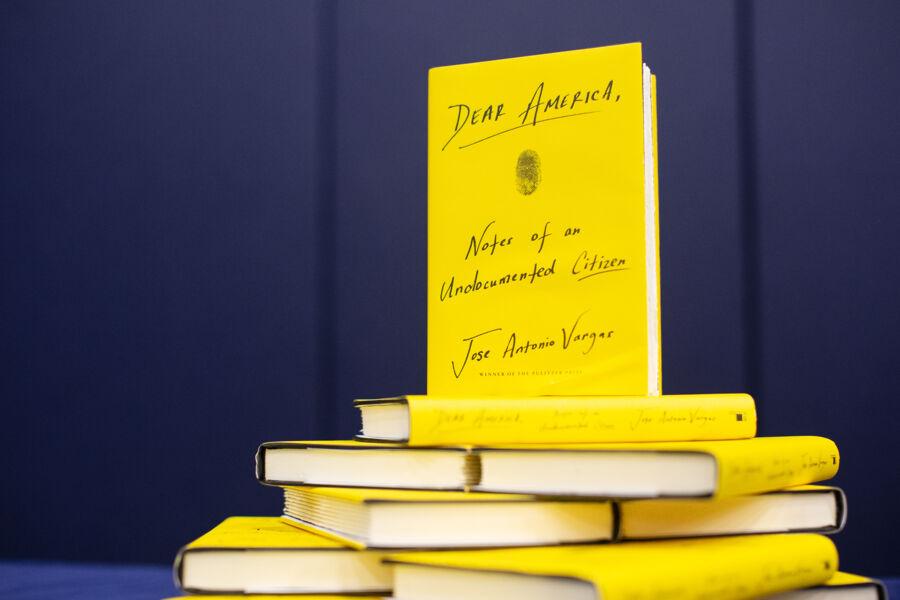 DEAR AMERICA,
Notes of an
Undocumented Citizen
Jose Antonio Vargas
WINNER OF THE PULITZER PRIZE
DEAR AMERICA,
Notes of an
Undocumented Citizen
Jose Antonio Vargas